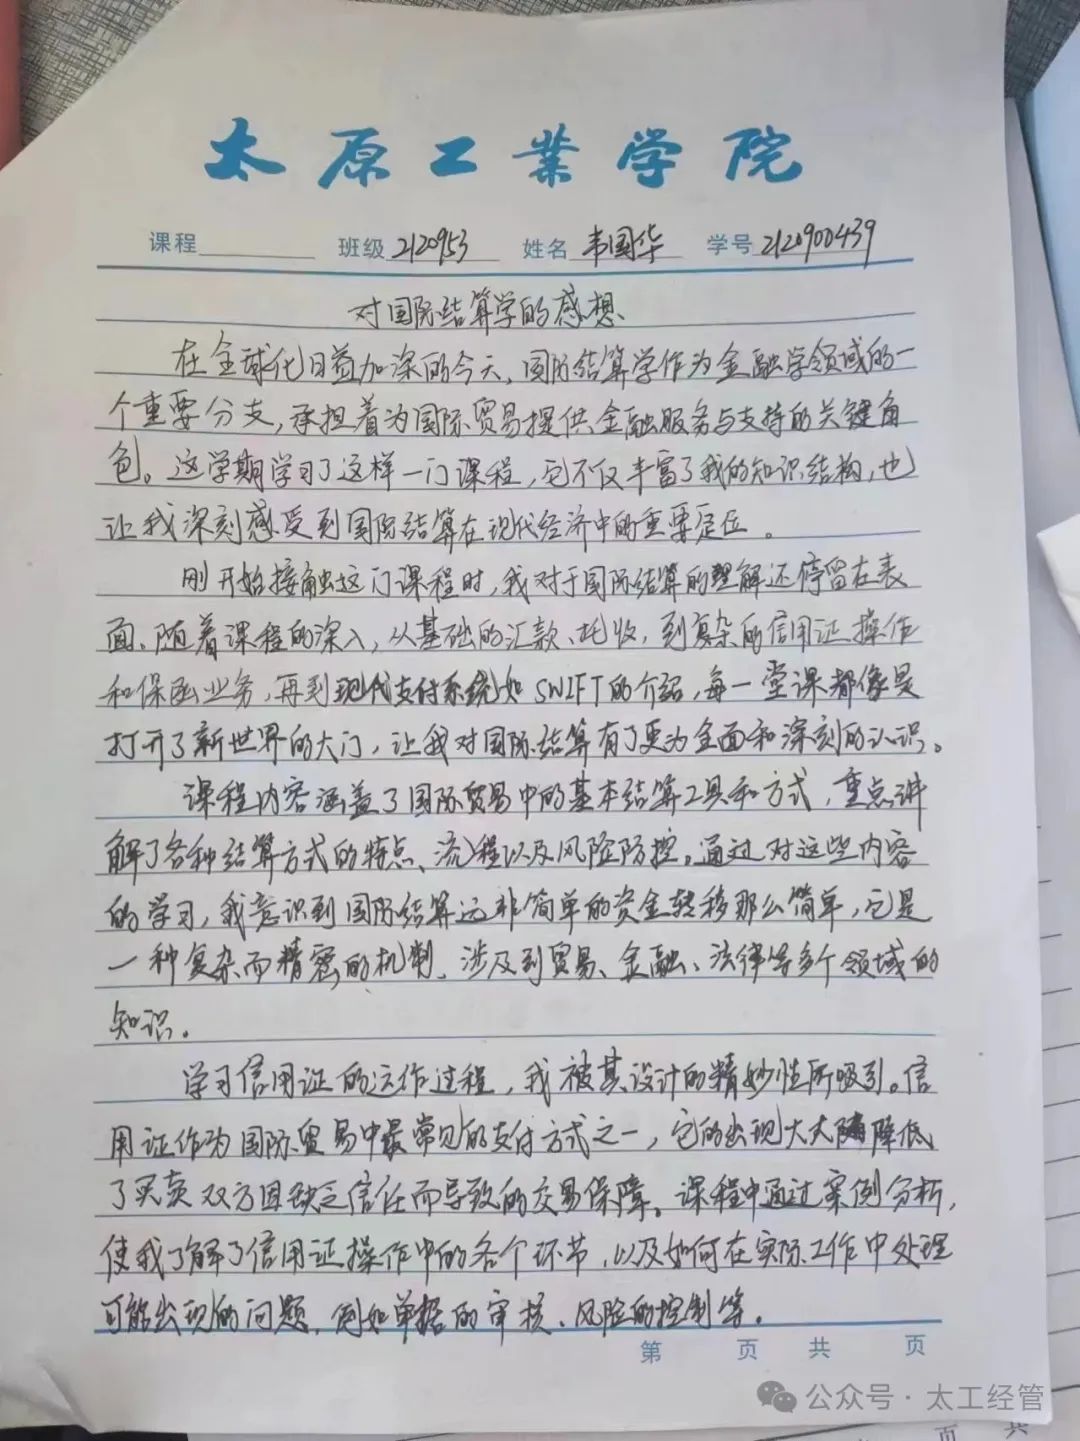 太原工业学院
课程 班级 2120953 姓名 韦国华 学号 2120900439
对国际结算学的感想
在全球化日益加深的今天,国际结算学作为金融学领域的一
个重要分支,承担着为国际贸易提供金融服务与支持的关键角
色。这学期学习了这样一门课程,它不仅丰富了我的知识结构,也
让我深刻感受到国际结算在现代经济中的重要定位。
刚开始接触这门课程时,我对于国际结算的理解还停留在表
面、随着课程的深入,从基础的汇款、托收,到复杂的信用证操作
和保函业务,再到现代支付系统如SWIFT的介绍,每一堂课都像是
打开了新世界的大门,让我对国际结算有了更为全面和深刻的认识。
课程内容涵盖了国际贸易中的基本结算工具和方式,重点讲
解了各种结算方式的特点、流程以及风险防控。通过对这些内容
的学习,我意识到国际结算远非简单的资金转移那么简单,它是
一种复杂而精密的机制,涉及到贸易、金融、法律等多个领域的
知识。
学习信用证的运作过程,我被其设计的精妙性所吸引。信
用证作为国际贸易中最常见的支付方式之一,它的出现大大降低
了买卖双方因缺乏信任而导致的交易保障。课程中通过案例分析,
使我了解了信用证操作中的各个环节,以及如何在实际工作中处理
可能出现的问题,例如单据的审核、风险的控制等。
第 页 共 页
公众号·太工经管
页 共